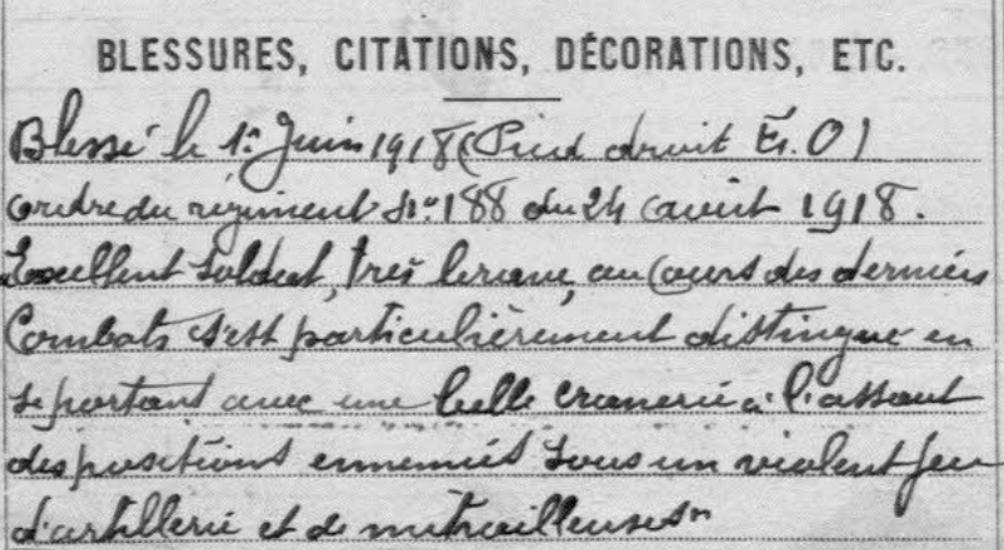 BLESSURES, CITATIONS, DÉCORATIONS, ETC.
Blessé le 1er Juin 1918 (Pied droit Er. O)
ordre du régiment N° 188 du 24 aout 1918.
Excellent soldat, très brave, au cours des derniers
Combats s'est particulièrement distingué en
se portant avec une belle cranerie à l'assaut
des positions ennemies sous un violent feu
d'artillerie et de mitrailleuses"